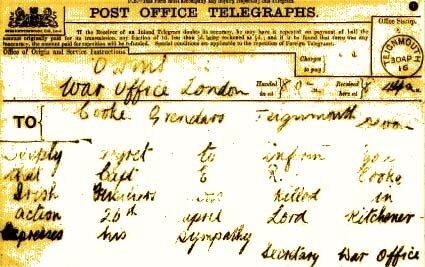 POST OFFICE TELEGRAPHS.
If the Receiver of an Inland Telegram doubts its accuracy, he may have it repeated on payment of half the
amount originally paid for its transmission, any fraction of 1d. less than ½d. being reckoned as ½d.; and if it be found that there was any
inaccuracy, the amount paid for repetition will be refunded. Special conditions are applicable to the repetition of Foreign Telegrams.
Office of Origin and Service Instructions.
Charges to pay
Office Stamp.
TEIGNMOUTH
30 AP
16
War Office London
Handed in at
Received here at
TO
Cooke Grendaro Teignmouth Devon
Deeply regret to inform you
that Capt E. R. Cooke
Irish Fusiliers was killed in
action 26th april Lord Kitchener
expresses his sympathy
Secretary War Office